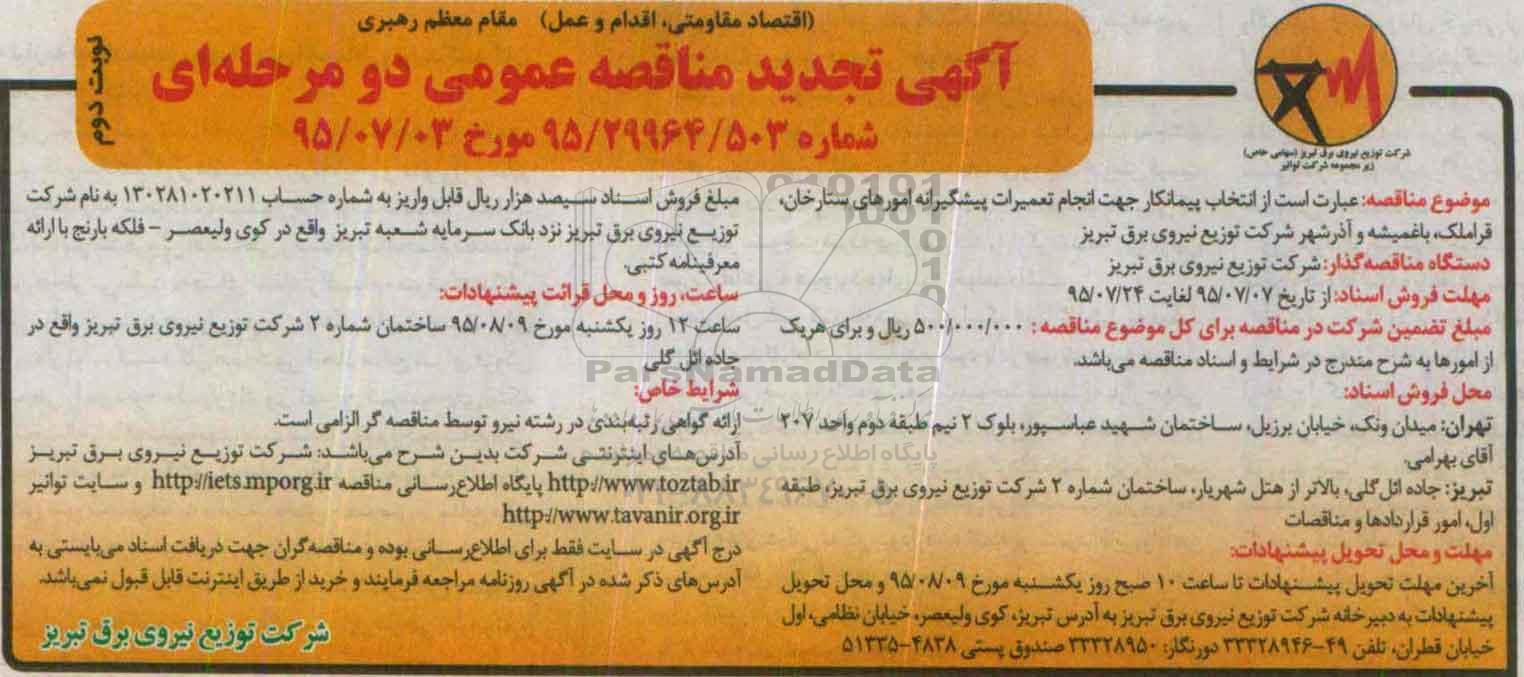 (اقتصاد مقاومتی، اقدام و عمل) مقام معظم رهبری
آگهی تجدید مناقصه عمومی دو مرحله‌ای
شماره ۹۵/۲۹۹۶۴/۵۰۳ مورخ ۹۵/۰۷/۰۳
نوبت دوم
شرکت توزیع نیروی برق تبریز (سهامی خاص)
زیر مجموعه شرکت توانیر
موضوع مناقصه: عبارت است از انتخاب پیمانکار جهت انجام تعمیرات پیشگیرانه امورهای ستارخان،
قراملک، باغمیشه و آذرشهر شرکت توزیع نیروی برق تبریز
دستگاه مناقصه‌گذار: شرکت توزیع نیروی برق تبریز
مهلت فروش اسناد: از تاریخ ۹۵/۰۷/۰۷ لغایت ۹۵/۰۷/۲۴
مبلغ تضمین شرکت در مناقصه برای کل موضوع مناقصه: ۵۰۰/۰۰۰/۰۰۰ ریال و برای هریک
از امورها به شرح مندرج در شرایط و اسناد مناقصه می‌باشد.
محل فروش اسناد:
تهران: میدان ونک، خیابان برزیل، ساختمان شهید عباسپور، بلوک ۲ نیم طبقه دوم واحد ۲۰۷
آقای بهرامی.
تبریز: جاده ائل‌گلی، بالاتر از هتل شهریار، ساختمان شماره ۲ شرکت توزیع نیروی برق تبریز، طبقه
اول، امور قراردادها و مناقصات
مهلت و محل تحویل پیشنهادات:
آخرین مهلت تحویل پیشنهادات تا ساعت ۱۰ صبح روز یکشنبه مورخ ۹۵/۰۸/۰۹ و محل تحویل
پیشنهادات به دبیرخانه شرکت توزیع نیروی برق تبریز به آدرس تبریز، کوی ولیعصر، خیابان نظامی، اول
خیابان قطران، تلفن ۴۹-۳۳۳۲۸۹۴۶ دورنگار: ۳۳۳۲۸۹۵۰ صندوق پستی ۴۸۳۸-۵۱۳۳۵
مبلغ فروش اسناد سیصد هزار ریال قابل واریز به شماره حساب ۱۳۰۲۸۱۰۲۰۲۱۱ به نام شرکت
توزیع نیروی برق تبریز نزد بانک سرمایه شعبه تبریز واقع در کوی ولیعصر - فلکه بارنج با ارائه
معرفینامه کتبی.
ساعت، روز و محل قرائت پیشنهادات:
ساعت ۱۲ روز یکشنبه مورخ ۹۵/۰۸/۰۹ ساختمان شماره ۲ شرکت توزیع نیروی برق تبریز واقع در
جاده ائل گلی
شرایط خاص:
ارائه گواهی رتبه‌بندی در رشته نیرو توسط مناقصه گر الزامی است.
آدرس‌های اینترنتی شرکت بدین شرح می‌باشد: شرکت توزیع نیروی برق تبریز
http://www.toztab.ir پایگاه اطلاع‌رسانی مناقصه http://iets.mporg.ir و سایت توانیر
http://www.tavanir.org.ir
درج آگهی در سایت فقط برای اطلاع‌رسانی بوده و مناقصه‌گران جهت دریافت اسناد می‌بایستی به
آدرس‌های ذکر شده در آگهی روزنامه مراجعه فرمایند و خرید از طریق اینترنت قابل قبول نمی‌باشد.
شرکت توزیع نیروی برق تبریز
ParsNamadData